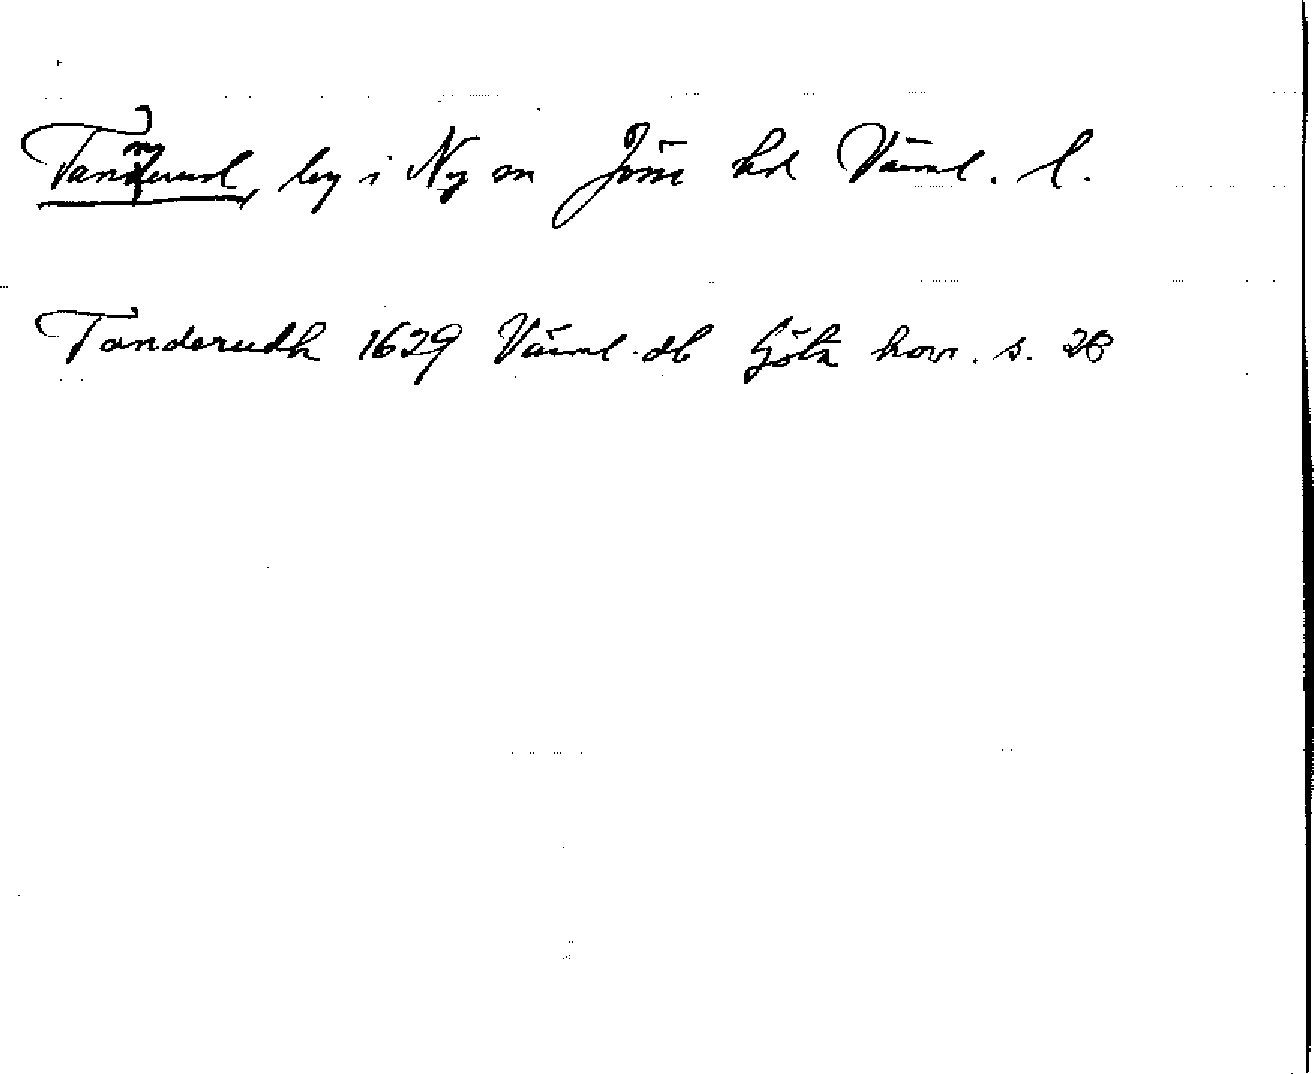 Tannerud, by i Ny sn Jösse hd Värml. l.
Tanderudh 1629 Värml. db Göta hovr. s. 28